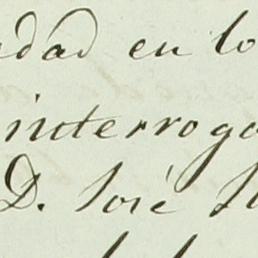 dad en lo
interroga
D. José